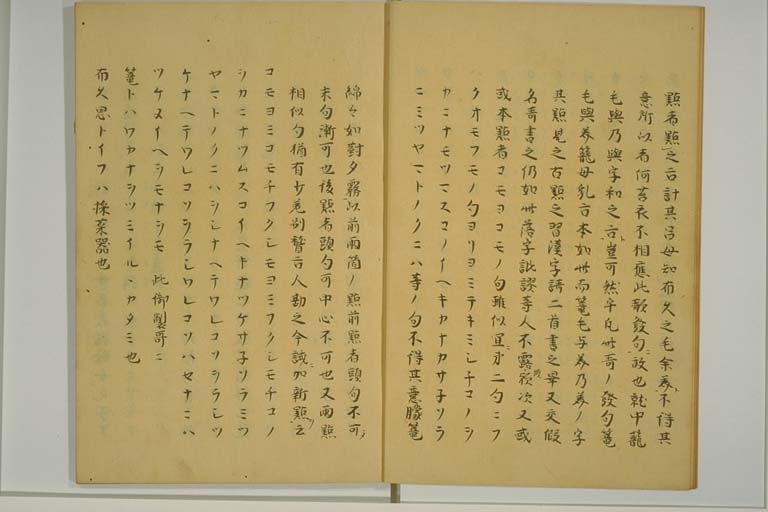 點者點之古計其呂母知布久之毛余
意所以者何苔衣不相應此歌發句故也就中籠
毛與乃與字和之言豈可然乎凡此哥ノ發句篭
毛與美籠母乳古本如此而篭毛与美乃美ノ字
其點見之古點之習漢字請二首書之畢又交假
名哥書之仍如此落字訛謬等人不露次又或
或本點者コモヨコモノ句雖似宜第二句ニフ
クオモフモノ句ヨリヨミテキミシチコノシ
カニナモツマスコノイヘキカナカサ子ソラ
ニミツヤマトノクニハ等ノ句不得其意朦篭
綿々如對夕霧以前兩箇ノ點前點者頭句不可
末句漸可也後點者頭句可中心不可也又兩點
相似句猶有少差別賢古人勘之今該加新點云
コモヨミコモチフクシモヨミフクシモチコノ
シカニナツムスコイヘキナツケサ子ソラミツ
ヤマトノクニハシナヘテワレコソシラシツ
ケナヘテワレコソシラシワレコソハセナニハ
ツケヌイヘシモナシモ 此御製哥ニ
篭トハワカナツミイルヽカタミ也
布久思トイフハ採菜器也